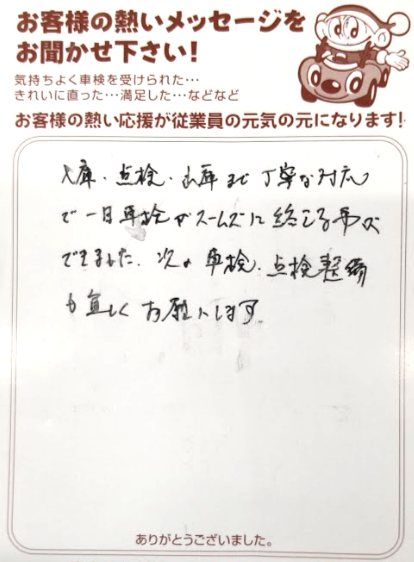 お客様の熱いメッセージを
お聞かせ下さい!
気持ちよく車検を受けられた…
きれいに直った…満足した…などなど
お客様の熱い応援が従業員の元気の元になります!
入庫・点検・出庫まで丁寧な対応
で一日車検がスームズに終える事が
できました。次の車検、点検整備
も宜しくお願いします。
ありがとうございました。